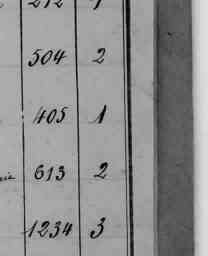 212 1
504 2
405 1
613 2
1234 3